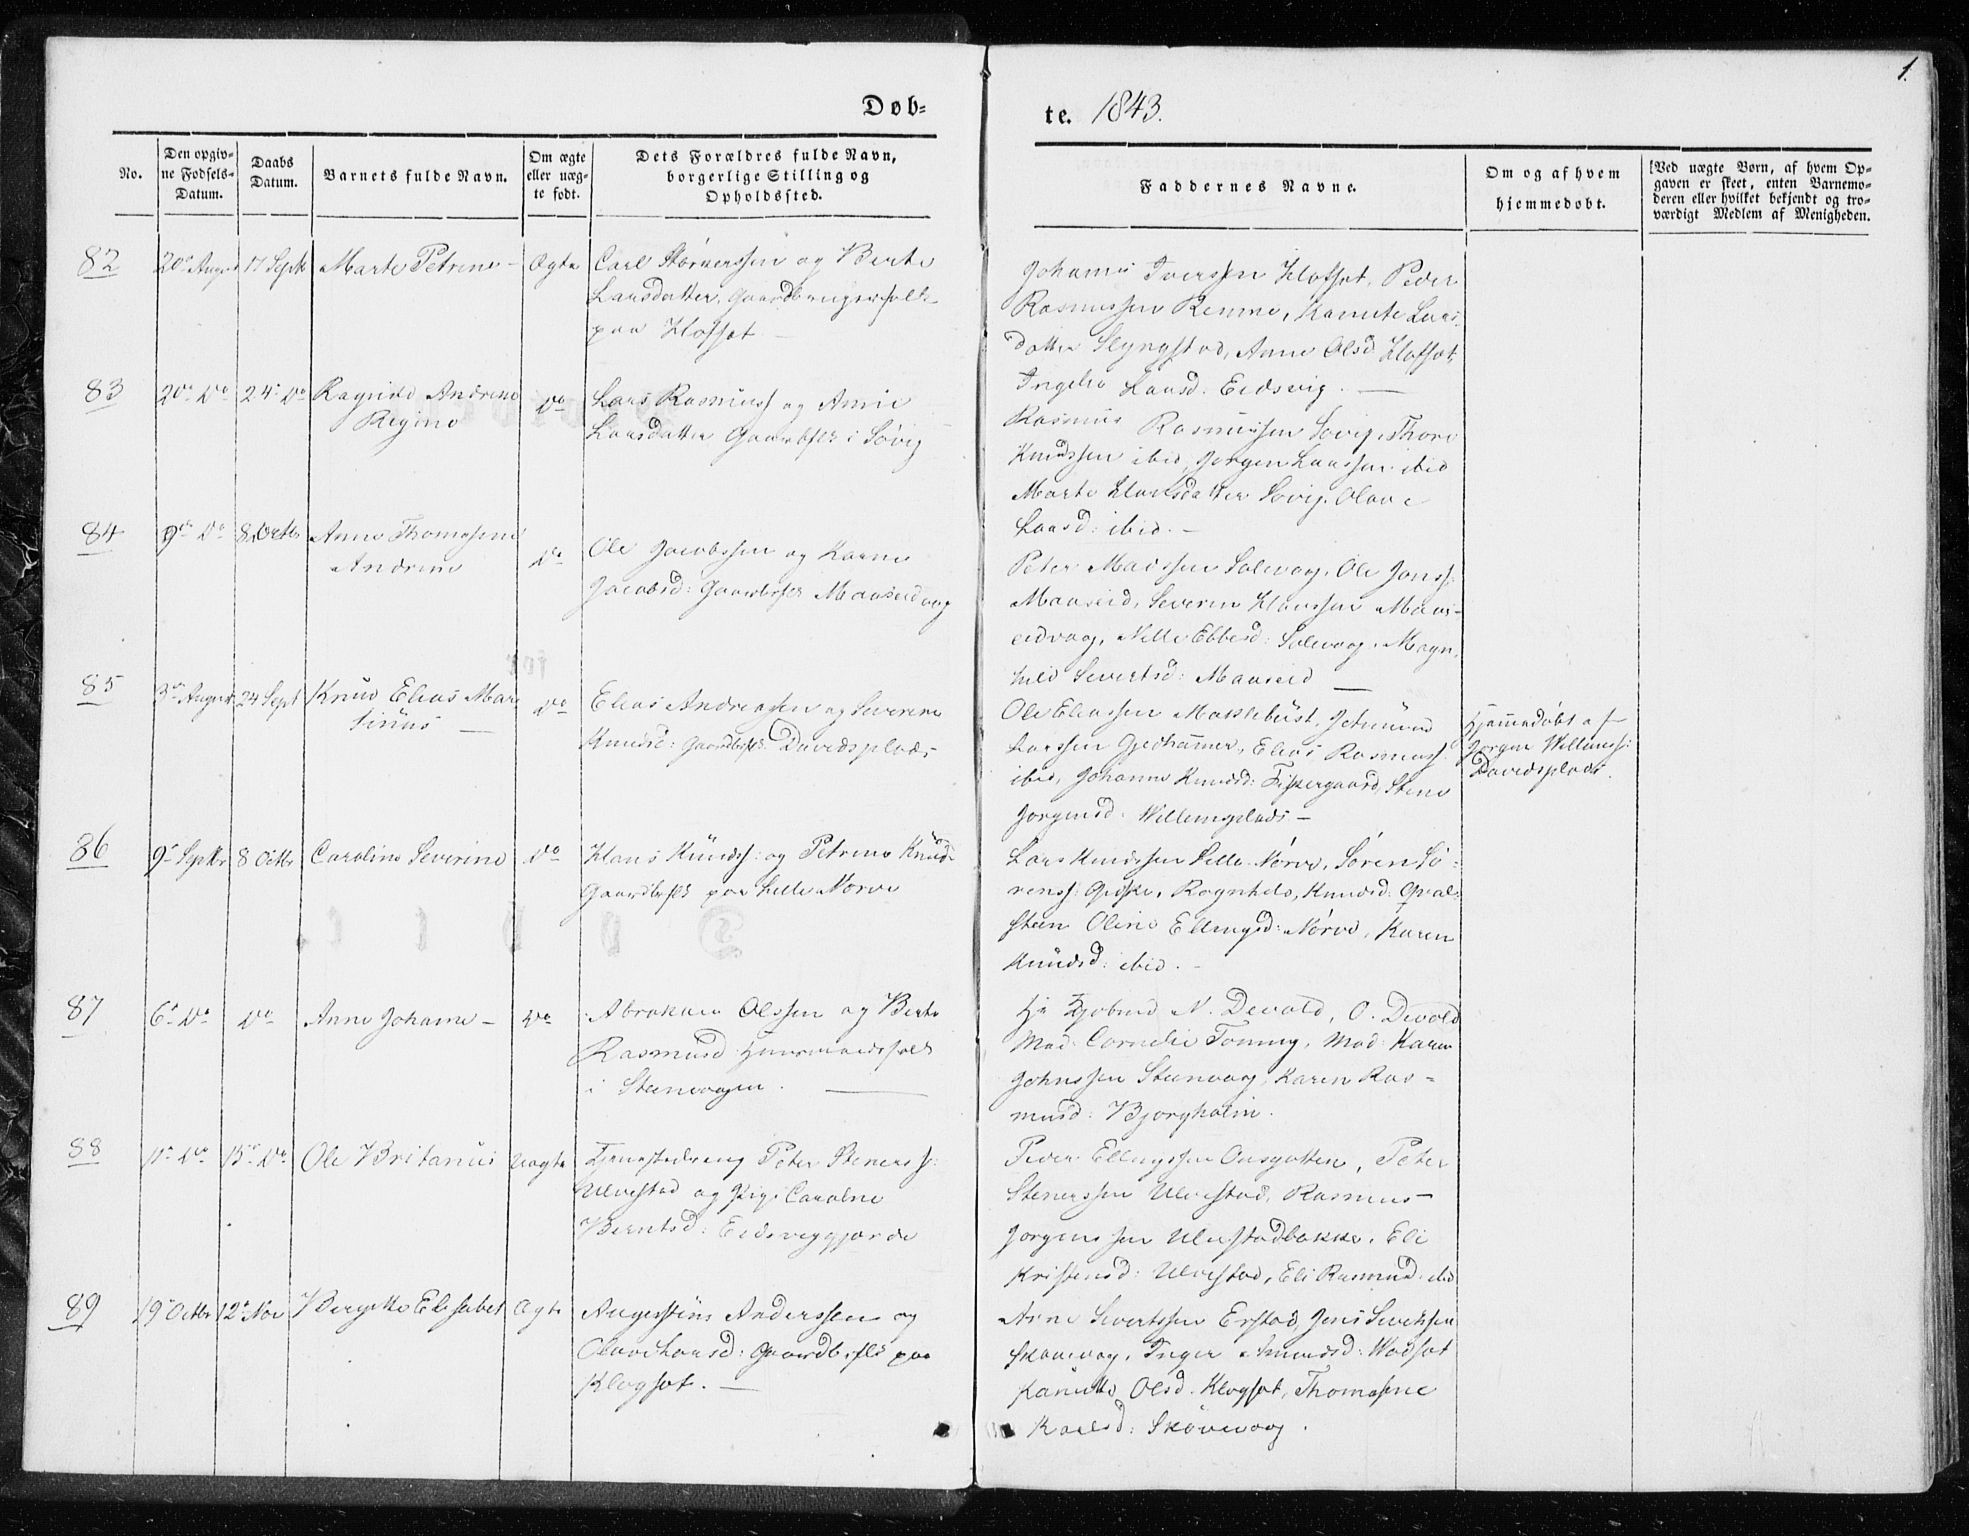 1.
Døb-
te. 1843.
No.
Den opgiv-
ne Fødsels-
Datum.
Daabs
Datum.
Barnets fulde Navn.
Om ægte
eller uæg-
te født.
Dets Forældres fulde Navn,
borgerlige Stilling og
Opholdssted.
Faddernes Navne.
Om og af hvem
hjemmedøbt.
[Ved uægte Børn, af hvem Op-
gaven er skeet, enten Barnemo-
deren eller hvilket bekjendt og tro-
værdigt Medlem af Menigheden.
82 20de August 17 Sept Marte Petrine - Ægte Carl og Berte
Larsdatter, Gaardbrugerfolk
paa Hofset -
Johannes Iverssen Hofset, Peder
Rasmussen Remme, Kanute Lars-
datter Slyngstad, Anne Olsd Hofset,
Ingeb. Larsd. Eidsvig. -
83 20de do 24de do Ragnild Andrine
Regine
do Lars Rasmuss og Anne
Larsdatter Gaardbflk i Søvig
Rasmus Rasmussen Sovig, Thore
Knudssen ibid, Jørgen Larssen ibid
Marte Hansdatter Sovig, Olave
Larsd: ibid. -
84 9de do 8 Octbr Anne Thomasine
Andrine
do Ole Jacobssen og Karne
Jacobsd: Gaardbflk Maaseidvaag
Peter Madssen Solevaag, Ole Jonss:
Maaseid, Severin Hanssen Maas-
eidvaag, Nille Ebbesd: Solevaag, Magn-
hild Sivertsd: Maaseid -
85 3de August 24 Sept Knud Elias Mar
tinus -
do Elias Andreassen og Severine
Knudsd: Gaardbflk: Davidsplads
Ole Eliassen Moklebust, Jetmund
Larssen Gjedhamer, Elias Rasmuss:
ibid, Johanne Knudsd: Fiskergaard, Stene
Jørgensd. Willemsplads -
Hjemmedøbt af
Jørgen Willemss:
Davidsplads.
86 9de Septbr 8 Octbr Caroline Severine do Hans Knudss: og Petrine Knud-
Gaardbflk paa Lille Norve
Lars Knudssen Lille Nørve, Søren Sø-
renss: Giske, Ragnhild, Knudsd: Qvals-
steen Oline Ellingsd: Nørve, Karen
Knudsd: ibid. -
87 6te do do Anne Johanne - do Abraham Olssen og Berte
Rasmusd: Huusmandsfolk
i Steenvaagen. -
Hr N. Devold, O. Devold
Mad: Cornelie Tonning, Mad: Karen
Johnssen Steenvaag, Karen Ras-
musd: Bjorgholm.
88 11te do 15de do Ole Britanus Uægte Tjenestedreng Peter Stenerss:
Ulvestad og Pige Caroline
Berntsd: Eidsviggjærde
Peder Ellingssen Aasgotten, Peter
Stenerssen Ulvestad, Rasmus -
Jorgenssen Ulvestadbakke, Eli
Kristensd: Ulvestad, Eli Rasmusd: ibid
89 19de Octbr 12te Nov Bergitte Elisabet Ægte Augustins Anderssen og
Olave Larsd: Gaardbflk paa
Klogset. -
Arne Sivertssen Erstad, Jens Sivertsen
Skaarvaag, Inger Amundsd: Wadset
Kanutte Olsd. Klogset, Thomasine
Karlsd: Skovevaag.